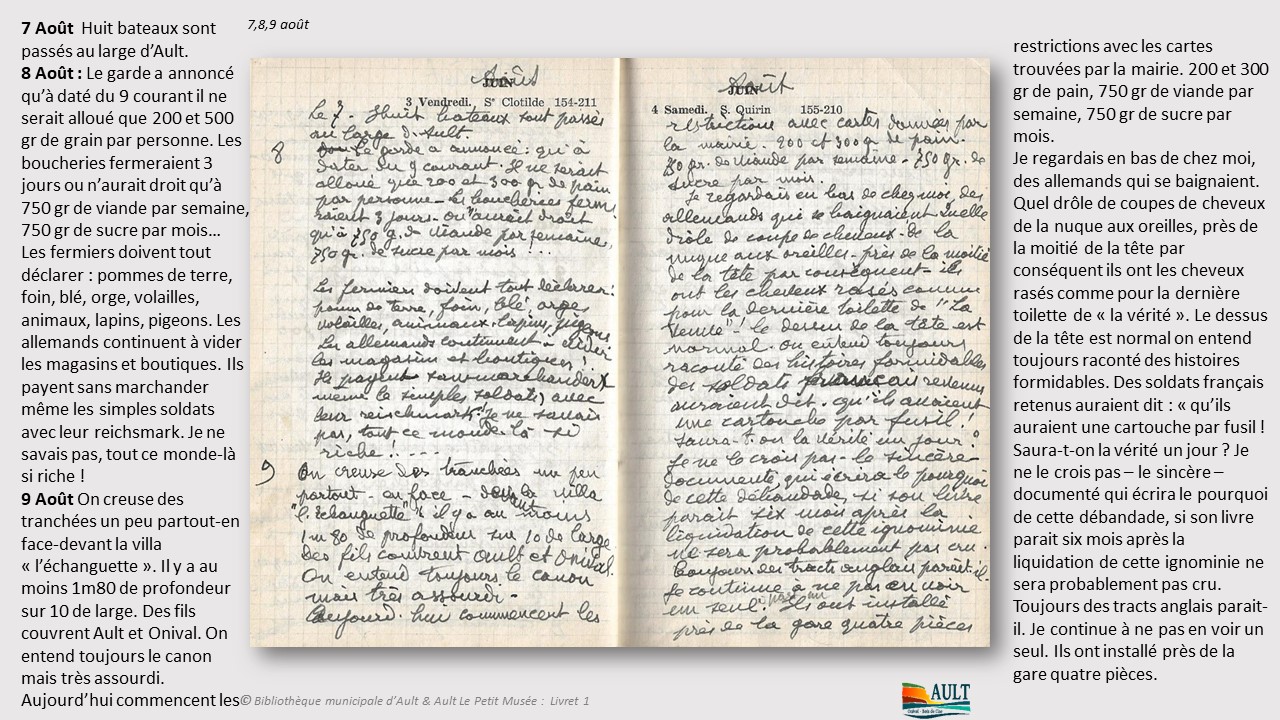 7 Août Huit bateaux sont
passés au large d’Ault.
8 Août : Le garde a annoncé
qu’à daté du 9 courant il ne
serait alloué que 200 et 500
gr de grain par personne. Les
boucheries fermeraient 3
jours ou n’aurait droit qu’à
750 gr de viande par semaine,
750 gr de sucre par mois…
Les fermiers doivent tout
déclarer : pommes de terre,
foin, blé, orge, volailles,
animaux, lapins, pigeons. Les
allemands continuent à vider
les magasins et boutiques. Ils
payent sans marchander
même les simples soldats
avec leur reichsmark. Je ne
savais pas, tout ce monde-là
si riche !
9 Août On creuse des
tranchées un peu partout-en
face-devant la villa
« l’échanguette ». Il y a au
moins 1m80 de profondeur
sur 10 de large. Des fils
couvrent Ault et Onival. On
entend toujours le canon
mais très assourdi.
Aujourd’hui commencent les
7,8,9 août
Août
JUIN
3 Vendredi. Sᵉ Clotilde 154-211
Le 7 - Huit bateaux sont passés
au large d'Ault.
8 le garde a annoncé : qu'à
dater du 9 courant. Il ne serait
alloué que 200 et 300 gr. de pain
par personne - Les boucheries ferme
raient 3 jours - on "aurait droit
qu'à 750 g. de viande par semaine,
750 gr. de sucre par mois ! . . .
Les fermiers doivent tout déclarer :
pomm. de terre, foin, blé, orge,
volailles, animaux, lapins, pigeons
Les allemands continuent à vider
les magasins et boutiques !
Ils payent sans marchander
même le simples soldats) avec
leur reischmark ! Je ne savais
pas, tout ce monde là si
riche ! . . . .
9 On creuse des tranchées un peu
partout - en face - devant la villa
"l'échanguette" il y a au moins
1m 80 de profondeur sur 10 de large.
Des fils couvrent Ault et Onival.
On entend toujours le canon
mais très assourdi -
Aujourd'hui commencent les
Août
JUIN
4 Samedi. S. Quirin 155-210
restrictions avec cartes données par
la mairie. 200 et 300 gr. de pain.
750 gr. de viande par semaine - 750 gr. de
sucre par mois.
Je regardais en bas de chez moi, des
allemands qui se baignaient. Quelle
drôle de coupe de cheveux - de la
nuque aux oreilles - près de la moitié
de la tête par conséquent - ils
ont les cheveux rasés comme
pour la dernière toilette de "La
Veuve" ! le dessus de la tête est
normal. On entend toujours
raconté des histoires formidables
des soldats français revenus
auraient dit : qu'ils avaient
une cartouche par fusil !
Saura-t-on la vérité un jour ?
Je ne le crois pas - le sincère -
documenté, qui écrira le pourquoi
de cette débandade, si son livre
parait six mois après la
liquidation de cette ignominie
ne sera probablement pas cru.
Toujours des tracts anglais parait-il.
Je continue à ne pas en voir
un seul. Ils ont installé
près de la gare quatre pièces
restrictions avec les cartes
trouvées par la mairie. 200 et 300
gr de pain, 750 gr de viande par
semaine, 750 gr de sucre par
mois.
Je regardais en bas de chez moi,
des allemands qui se baignaient.
Quel drôle de coupes de cheveux
de la nuque aux oreilles, près de
la moitié de la tête par
conséquent ils ont les cheveux
rasés comme pour la dernière
toilette de « la vérité ». Le dessus
de la tête est normal on entend
toujours raconté des histoires
formidables. Des soldats français
retenus auraient dit : « qu’ils
auraient une cartouche par fusil !
Saura-t-on la vérité un jour ? Je
ne le crois pas – le sincère –
documenté qui écrira le pourquoi
de cette débandade, si son livre
parait six mois après la
liquidation de cette ignominie ne
sera probablement pas cru.
Toujours des tracts anglais parait-
il. Je continue à ne pas en voir un
seul. Ils ont installé près de la
gare quatre pièces.
© Bibliothèque municipale d’Ault & Ault Le Petit Musée : Livret 1
AULT